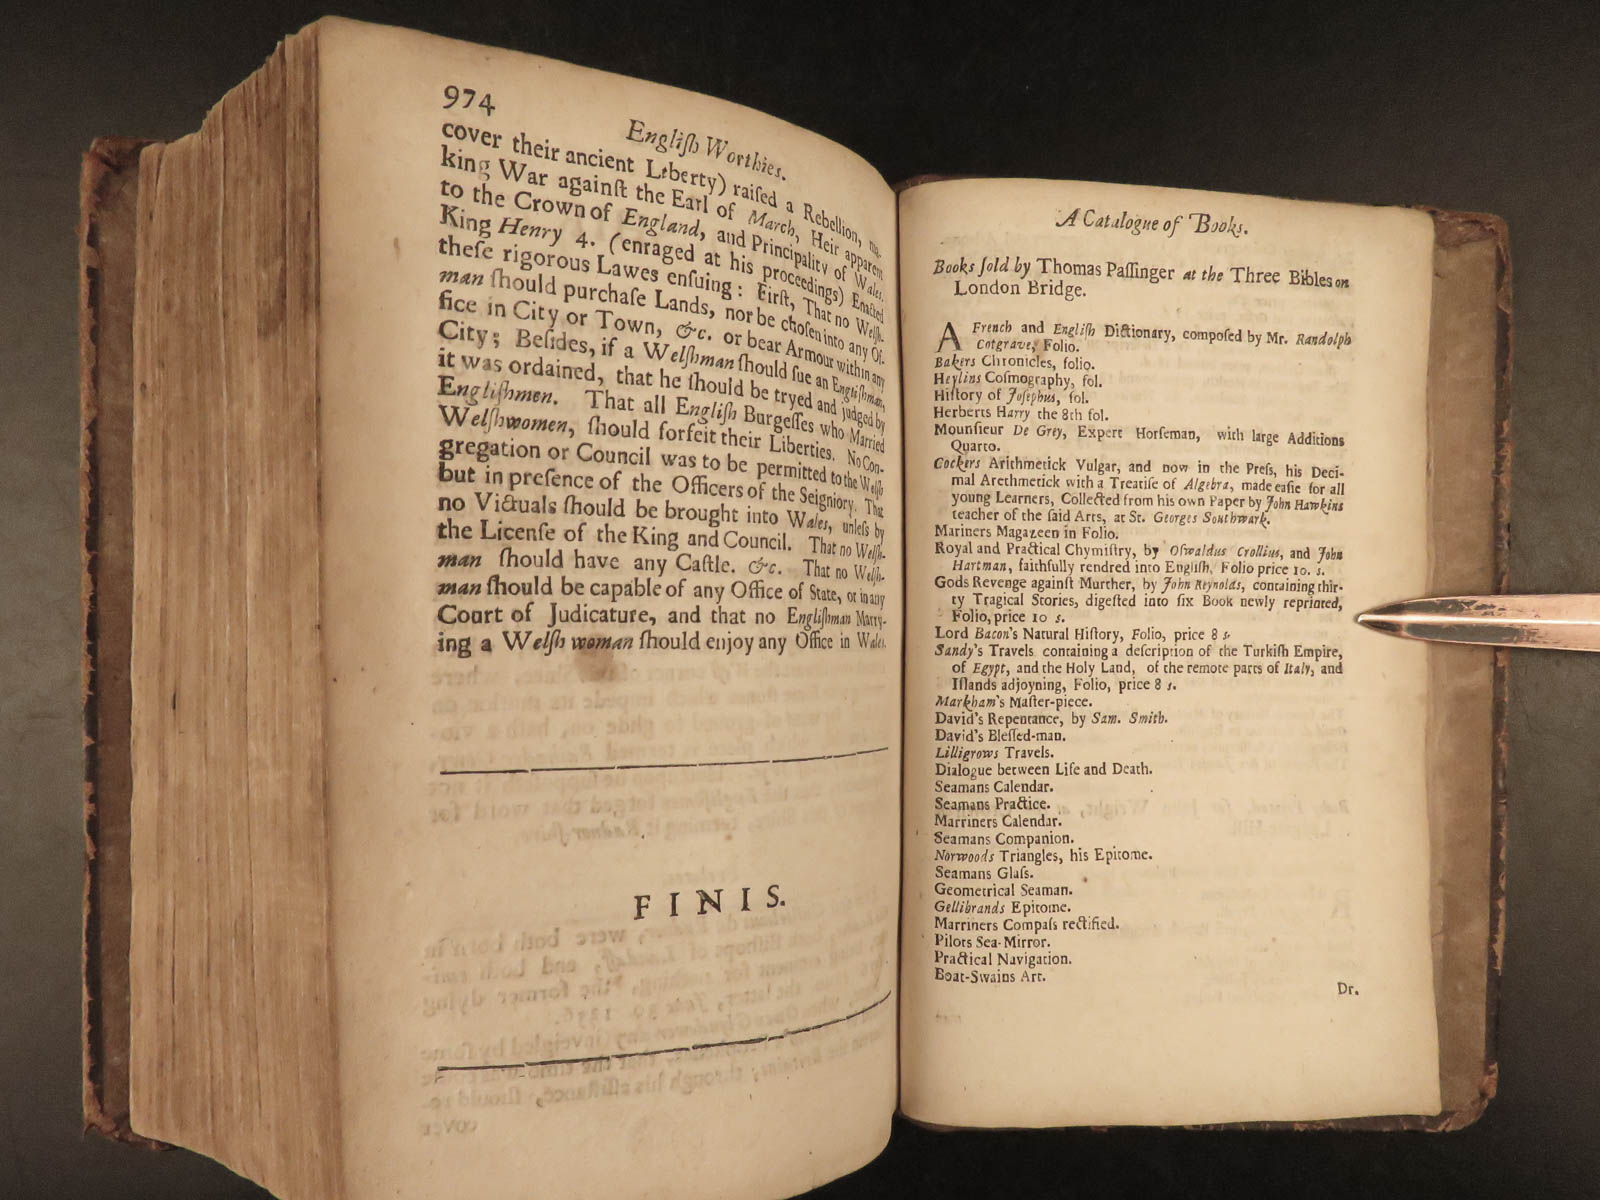 974
Engliſh Worthies.
cover their ancient Liberty) raiſed a Rebellion, ma-
king War againſt the Earl of March, Heir apparent
to the Crown of England, and Principality of Wales.
King Henry 4. (enraged at his proceedings) Enacted
theſe rigorous Lawes enſuing: Firſt, That no Welſh-
man ſhould purchaſe Lands, nor be choſen into any Of-
fice in City or Town, &c. or bear Armour within any
City; Beſides, if a Welſhman ſhould ſue an Engliſhman,
it was ordained, that he ſhould be tryed and judged by
Engliſhmen. That all Engliſh Burgeſſes who Married
Welſhwomen, ſhould forfeit their Liberties. No Con-
gregation or Council was to be permitted to the Welſh
but in preſence of the Officers of the Seigniory. That
no Victuals ſhould be brought into Wales, unleſs by
the Licenſe of the King and Council. That no Welſh-
man ſhould have any Caſtle. &c. That no Welſh-
man ſhould be capable of any Office of State, or in any
Court of Judicature, and that no Engliſhman Marry-
ing a Welſh woman ſhould enjoy any Office in Wales.
FINIS.
A Catalogue of Books.
Books ſold by Thomas Paſſinger at the Three Bibles on
London Bridge.
A French and Engliſh Dictionary, compoſed by Mr. Randolph
Cotgrave, Folio.
Bakers Chronicles, folio.
Heylins Coſmography, fol.
Hiſtory of Joſephus, fol.
Herberts Harry the 8th fol.
Mounſieur De Grey, Expert Horſeman, with large Additions
Quarto.
Cockers Arithmetick Vulgar, and now in the Preſs, his Deci-
mal Arethmetick with a Treatiſe of Algebra, made eaſie for all
young Learners, Collected from his own Paper by John Hawkins
teacher of the ſaid Arts, at St. Georges Southwark.
Mariners Magazeen in Folio.
Royal and Practical Chymiſtry, by Oſwaldus Crollius, and John
Hartman, faithfully rendred into Engliſh, Folio price 10. s.
Gods Revenge againſt Murther, by John Reynolds, containing thir-
ty Tragical Stories, digeſted into ſix Book newly reprinted,
Folio, price 10 s.
Lord Bacon's Natural Hiſtory, Folio, price 8 s.
Sandy's Travels containing a deſcription of the Turkiſh Empire,
of Egypt, and the Holy Land, of the remote parts of Italy, and
Iſlands adjoyning, Folio, price 8 s.
Markham's Maſter-piece.
David's Repentance, by Sam. Smith.
David's Bleſſed-man.
Lilligrows Travels.
Dialogue between Life and Death.
Seamans Calendar.
Seamans Practice.
Marriners Calendar.
Seamans Companion.
Norwoods Triangles, his Epitome.
Seamans Glaſs.
Geometrical Seaman.
Gellibrands Epitome.
Marriners Compaſs rectified.
Pilots Sea-Mirror.
Practical Navigation.
Boat-Swains Art.
Dr.